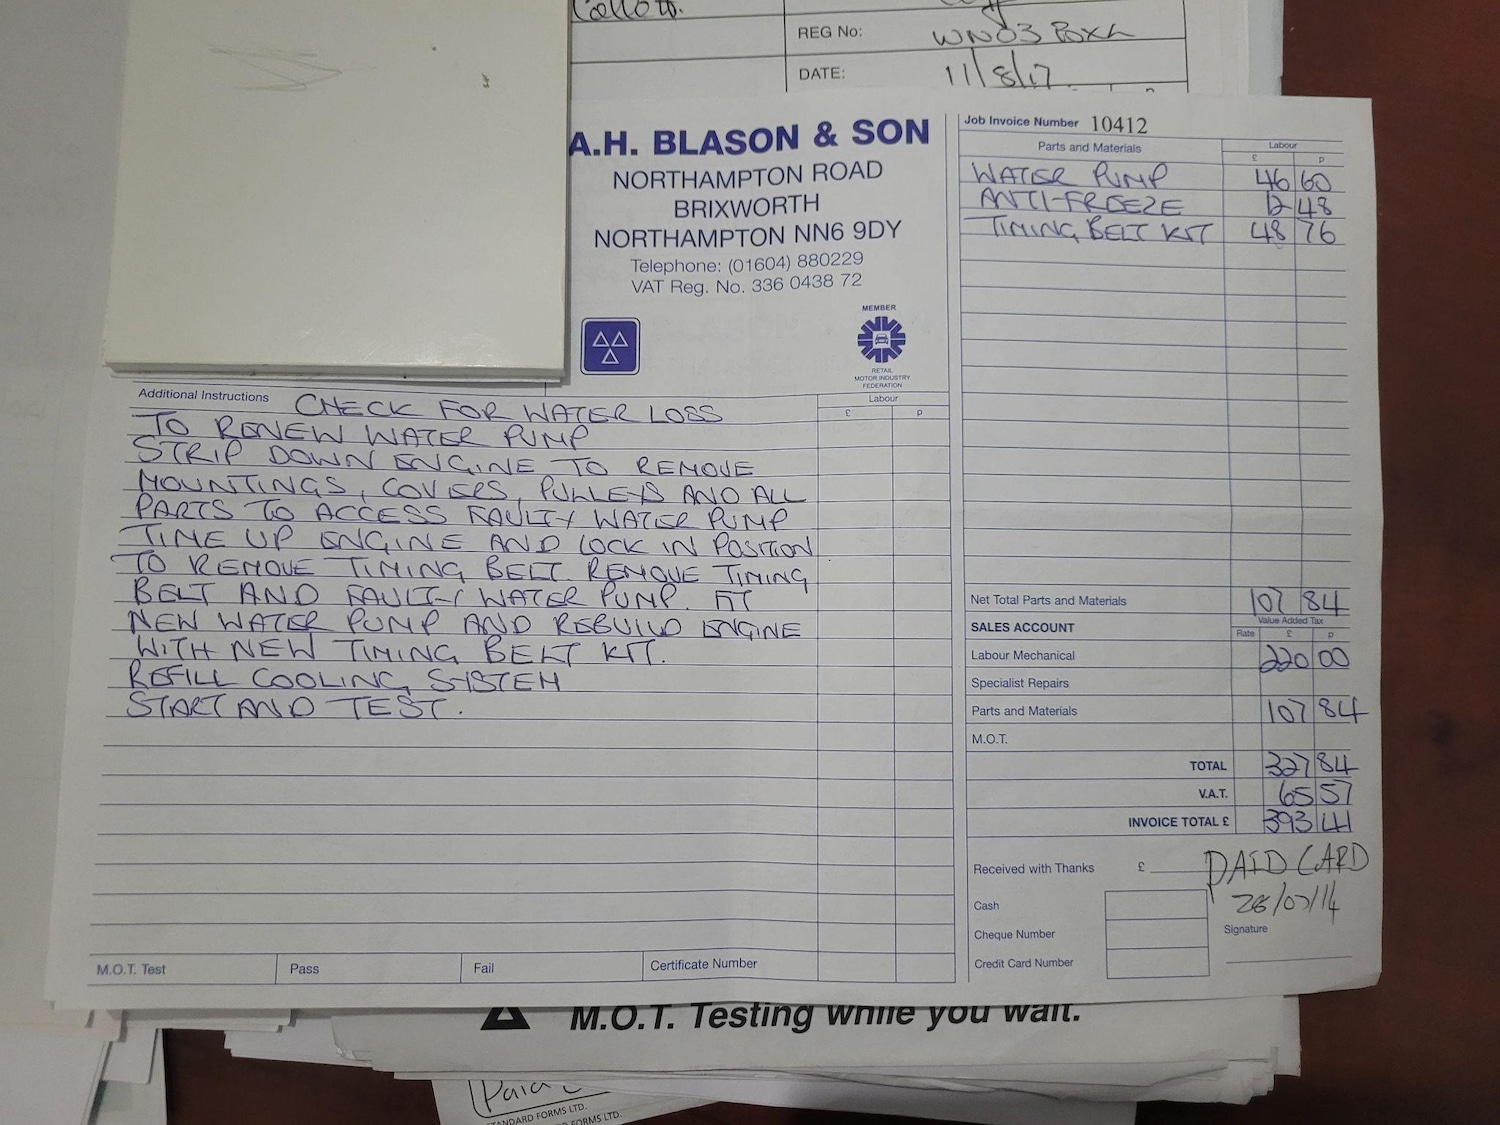 REG No: WN03
DATE: 11/8/17
A.H. BLASON & SON
NORTHAMPTON ROAD
BRIXWORTH
NORTHAMPTON NN6 9DY
Telephone: (01604) 880229
VAT Reg. No. 336 0438 72
MEMBER
RETAIL
MOTOR INDUSTRY
FEDERATION
Additional Instructions CHECK FOR WATER LOSS
Labour
£ p
TO RENEW WATER PUMP
STRIP DOWN ENGINE TO REMOVE
MOUNTINGS, COVERS, PULLEYS AND ALL
PARTS TO ACCESS FAULTY WATER PUMP
TIME UP ENGINE AND LOCK IN POSITION
TO REMOVE TIMING BELT. REMOVE TIMING
BELT AND FAULTY WATER PUMP. FIT
NEW WATER PUMP AND REBUILD ENGINE
WITH NEW TIMING BELT KIT.
REFILL COOLING SYSTEM
START AND TEST.
M.O.T. Test Pass Fail Certificate Number
Job Invoice Number 10412
Parts and Materials Labour
£ p
WATER PUMP 46 60
ANTI-FREEZE 12 48
TIMING BELT KIT 48 76
Net Total Parts and Materials 107 84
Value Added Tax
SALES ACCOUNT Rate £ p
Labour Mechanical 220 00
Specialist Repairs
Parts and Materials 107 84
M.O.T.
TOTAL 327 84
V.A.T. 65 57
INVOICE TOTAL £ 393 41
Received with Thanks £ PAID CARD
Cash
Cheque Number
Signature
Credit Card Number
M.O.T. Testing while you wait.
Paid
STANDARD FORMS LTD.
FORMS LTD.